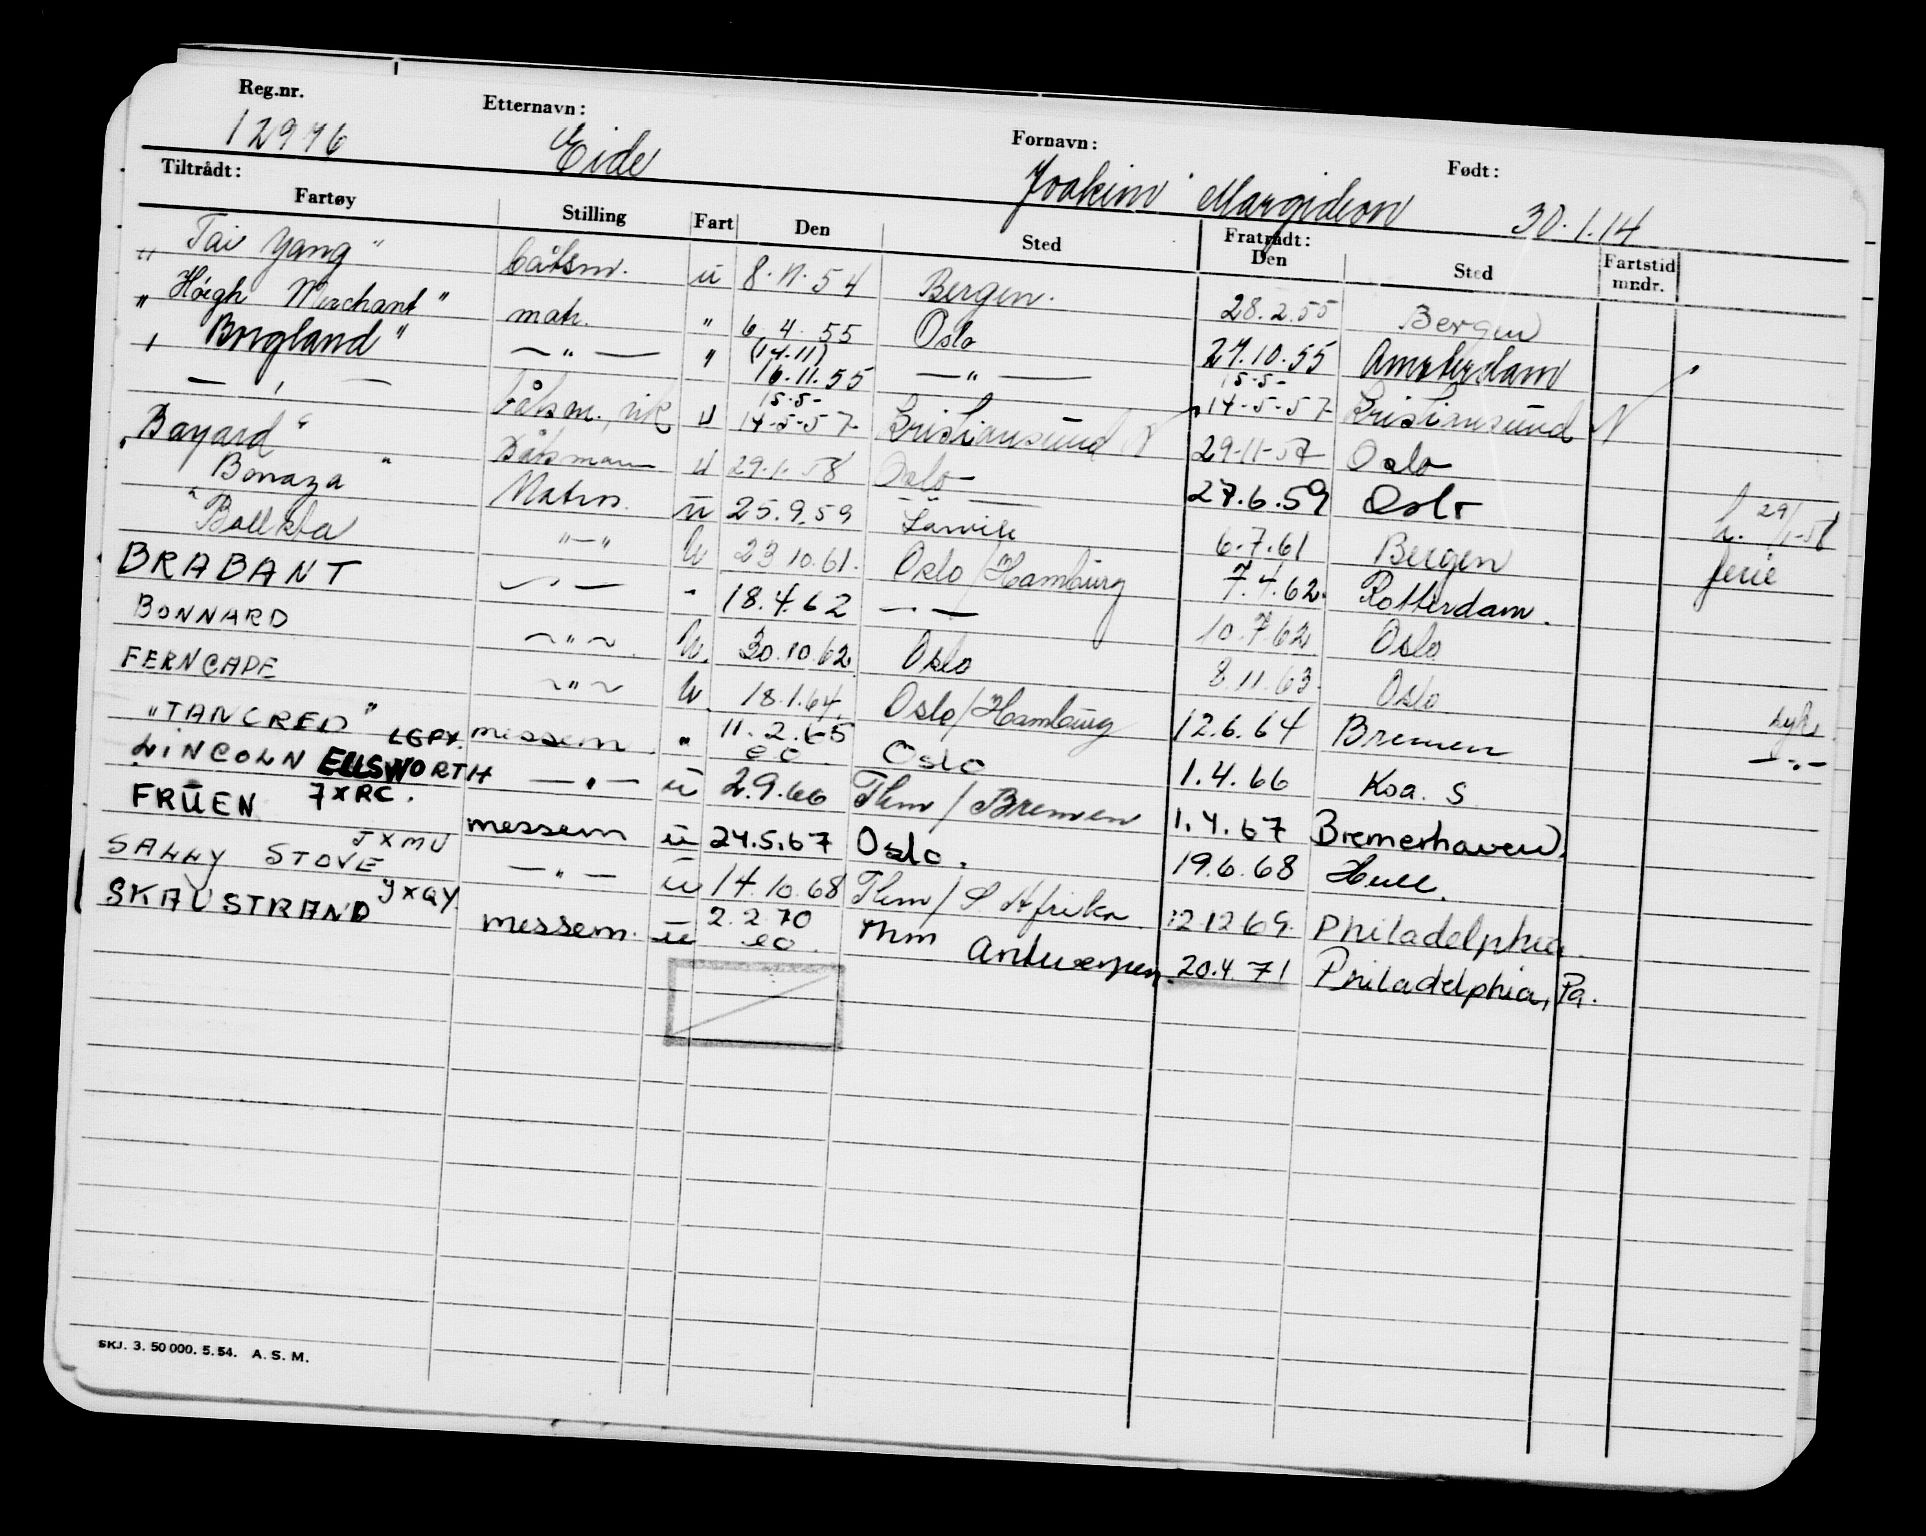 Reg.nr. Etternavn: Fornavn: Født:
12976 Eide Joakim Margido 30.1.14
Tiltrådt: Fratrådt:
Fartøy Stilling Fart Den Sted Den Sted Fartstid mndr.
" Tai Yang " båtsm. u 8.11.54 Bergen. 28.2.55 Bergen
" Høegh Merchant " matr. " 6.4.55 Oslo 27.10.55 Amsterdam
" Borgland " — " — " (14.11) 16.11.55 — " — 15.5- 14-5-57 Kristiansund N
— " — båtsm., vik u 15.5- 14-5-57 Kristiansund N 29-11-57 Oslo
"Bayard " Båtsmann u 29.1.58 Oslo 27.6.59 Oslo 29/1-58
" Bonaza " Matros u 25.9.59 Larvik 6.7.61 Bergen ferie
"Balkta " — " u 23.10.61. Oslo/Hamburg 7.4.62. Rotterdam.
BRABANT — " — " 18.4.62 — " — 10.7.62 Oslo
BONNARD ~ " ~ u. 30.10.62 Oslo 8.11.63. Oslo
FERNCAPE ~ " ~ u. 18.1.64. Oslo/Hamburg 12.6.64 Bremen syk.
"TANCRED" LGPX. messem. " 11.2.65 eo. Oslo 1.4.66 Ksa. S — " —
LINCOLN ELLSWORTH — " — u 2.9.66 Thm/Bremen 1.4.67 Bremerhaven.
FRUEN 7XRC. messem u 24.5.67 Oslo. 19.6.68 Hull.
SALLY STOVE JXMU — " — u 14.10.68 Thm/S. Afrika 12 12 69. Philadelphia.
SKAUSTRAND JXQY messem. u 2.2.70 eo. Thm Antwerpen. 20.4.71 Philadelphia, Pa.
SKJ. 3. 50 000. 5. 54. A. S. M.